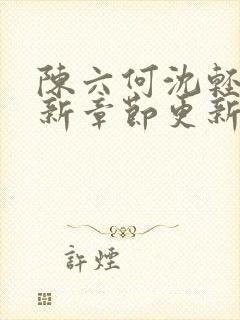 陳六何沈輕
新章節更新
許煙